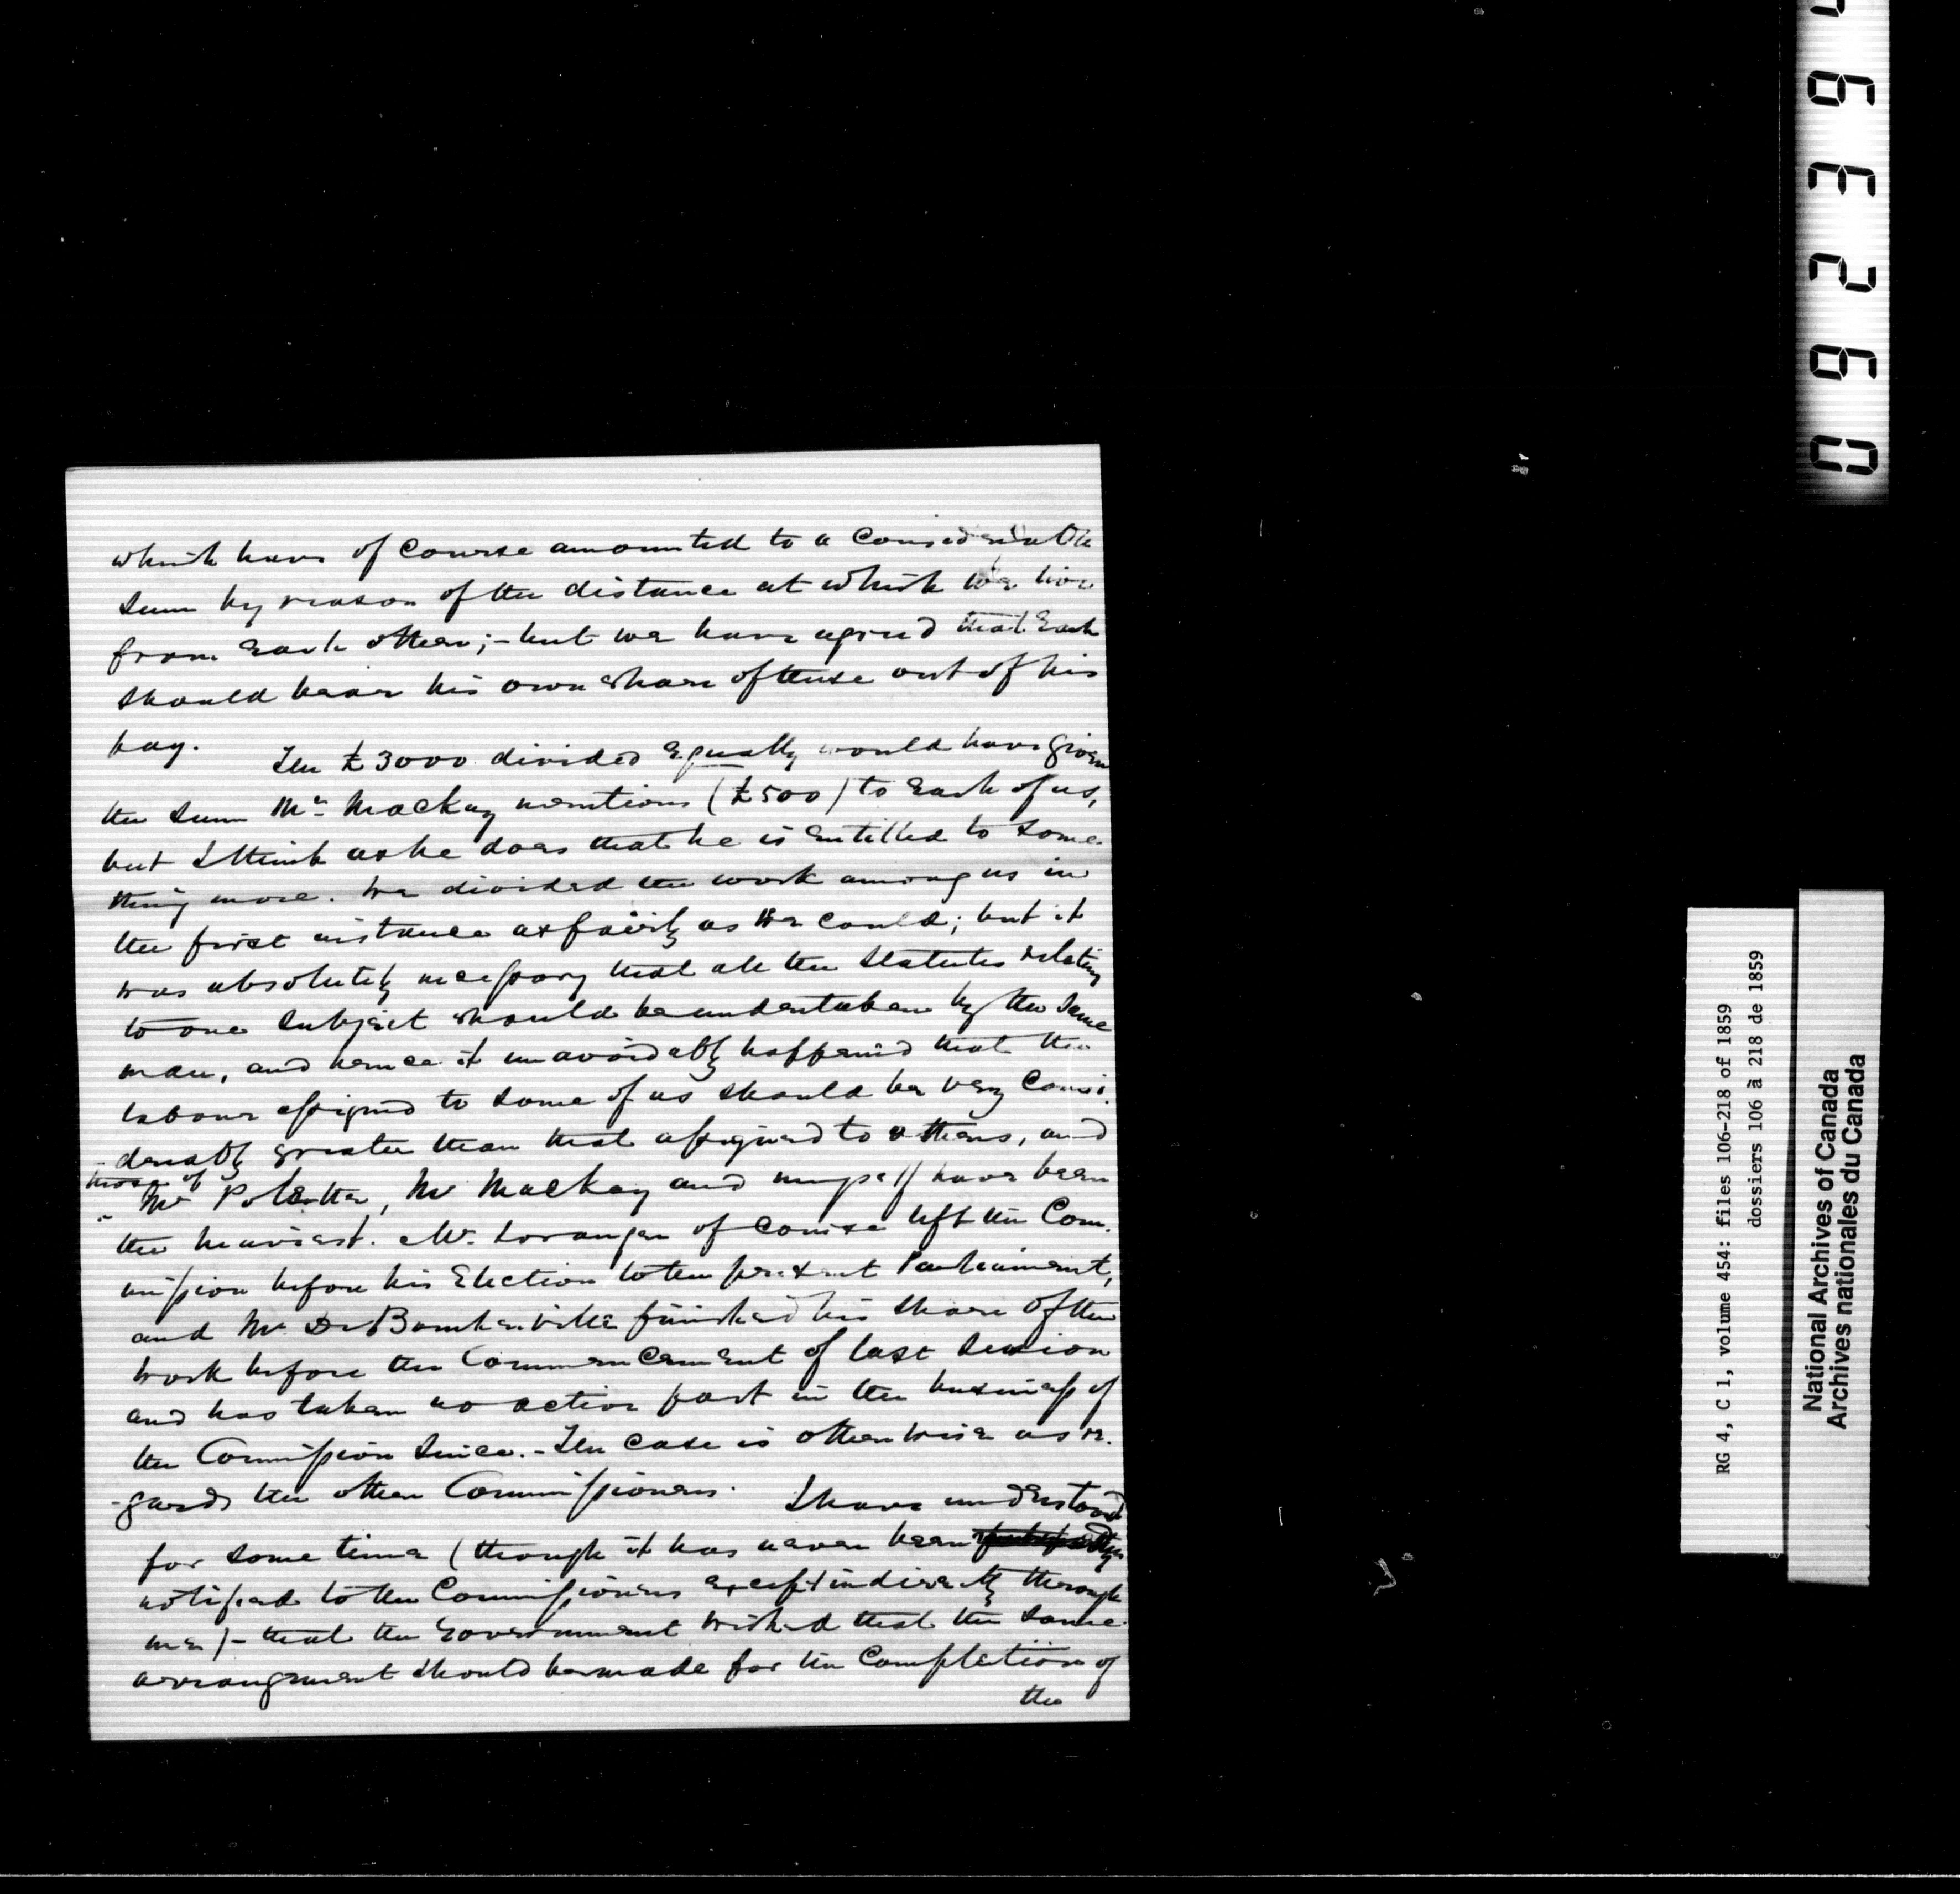 which have of Course amounted to a Considerable
Sum by reason of the distance at which we live
from Each other; - but we have agreed that Each
should bear his own share of these out of his
pay. The £3000 divided Equally would have given
the Sum Mr. Mackay mentions (£500) to Each of us,
but I think as he does that he is Entitled to Some
thing more. We divided the work among us in
the first instance as fairly as We Could; but it
was absolutely necessary that all the Statutes relating
to one Subject should be undertaken by the same
man, and hence it unavoidably happened that the
labour assigned to Some of us should be very Consi.
-derably greater than that assigned to others, and
those of
Mr Polette, Mr Mackay and myself have been
the heaviest. Mr. Loranger of Course left the Com.
mission before his Election to the present Parliament,
and Mr De Boucherville finished his Share of the
Work before the Commencement of last Session
and has taken no active part in the business of
the Commission Since. - The Case is otherwise as re.
-gards the other Commissioners. I have understood
for Some time (though it has never been
notified to the Commissioners except indirectly through
me) - that the Government wished that the Same
arrangement should be made for the Completion of
the
RG 4, C 1, volume 454: files 106-218 of 1859
dossiers 106 à 218 de 1859
National Archives of Canada
Archives nationales du Canada